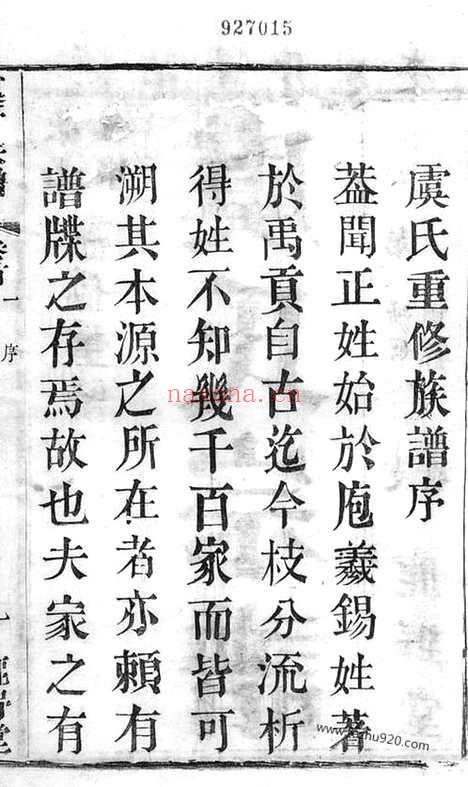 927015
虞氏重修族譜序
葢聞正姓始於庖羲錫姓著
於禹貢自古迄今枝分流析
得姓不知幾千百家而皆可
溯其本源之所在者亦賴有
譜牒之存焉故也夫家之有
序
nayona.cn